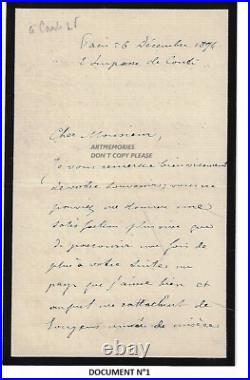 à Conti 2f
Paris 26 Décembre 1894
2 Impasse de Conti.
Cher Monsieur,
ARTMEMORIES
DON'T COPY PLEASE
Je vous remercie bien vivement
de votre souvenir; vous ne
pouviez me donner une
satisfaction plus vive que
de parcourir une fois de
plus à votre suite, un
pays que j'aime bien et
auquel me rattachent de
longues années de misère
DOCUMENT N°1